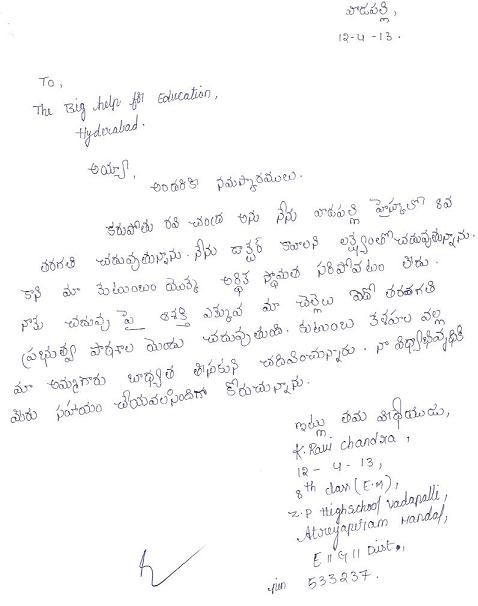 వాడపల్లి,
12-4-13.
To,
The Big help for Education,
Hyderabad.
అయ్యా,
అందరికీ నమస్కారములు.
కరుపోతు రవి చంద్ర అను నేను వాడపల్లి హైస్కూలో 8వ
తరగతి చదువుతున్నాను. నేను డాక్టర్ కావాలని లక్ష్యంతో చదువుతున్నాను.
కాని మా కుటుంబం యొక్క ఆర్థిక స్థోమత సరిపోవటం లేదు.
నాకు చదువు పై ఆసక్తి ఎక్కువ మా చెల్లెలు తరగతి
ప్రభుత్వ పాఠశాల యందు చదువుతుంది. కుటుంబ వల్ల
మా అమ్మగారు బాధ్యత తీసుకుని చదివించుచున్నారు. నా విద్యాభివృద్ధికి
మీరు సహాయం చేయవలసిందిగా కోరుచున్నాను.
ఇట్లు తమ విధేయుడు,
K. Ravi Chandra,
12 - 4 - 13,
8th class (E.M),
Z.P Highschool Vadapalli,
Atreyapuram Mandal,
E || G || Dist.,
pin 533237.